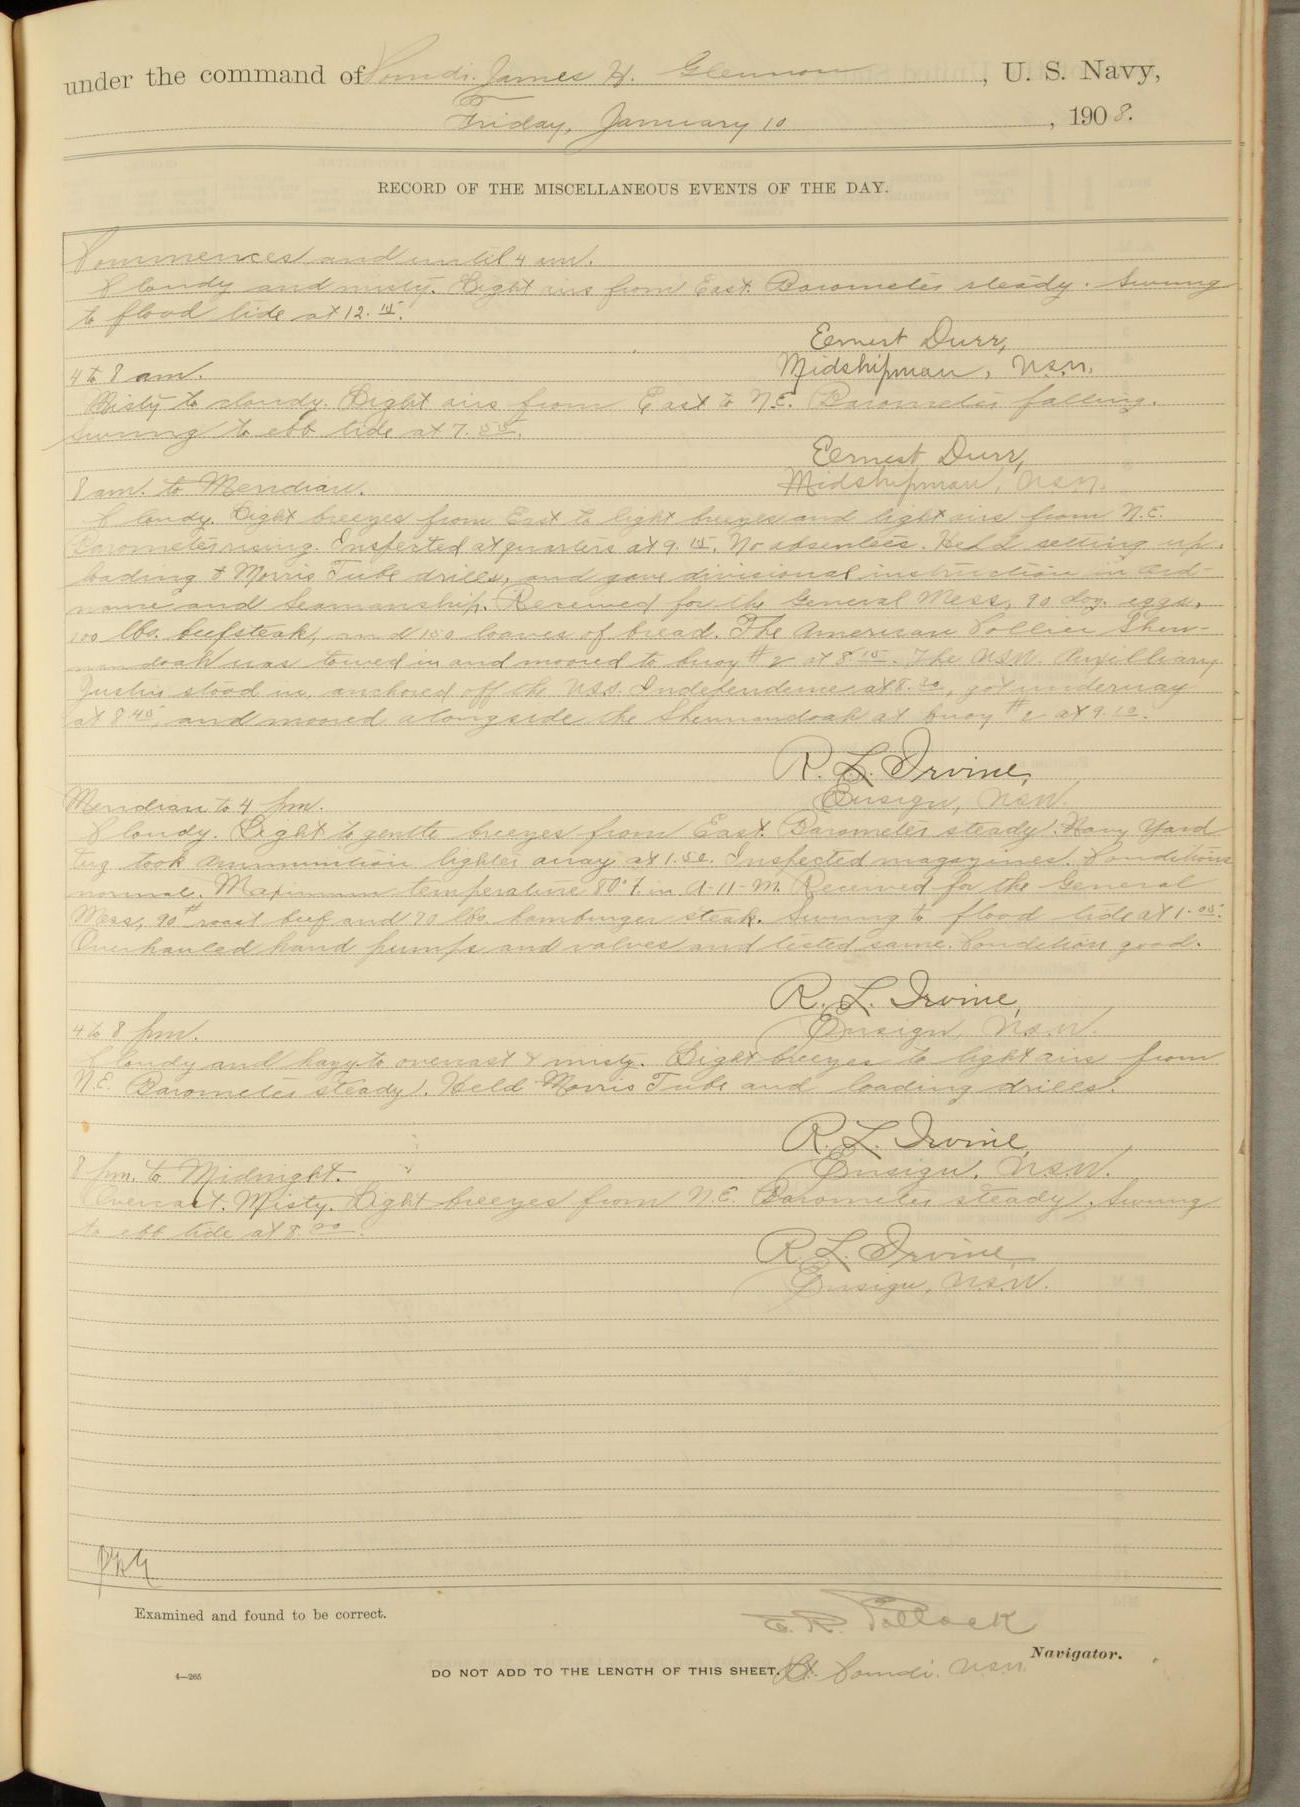 under the command of Comdr. James H. Glennon, U. S. Navy,
Friday, January 10, 1908.
RECORD OF THE MISCELLANEOUS EVENTS OF THE DAY.
Commences and until 4 am.
Cloudy and misty. Light airs from East. Barometer steady. Swung
to flood tide at 12.15.
Ernest Durr,
Midshipman, U.S.N.
4 to 8 am.
Misty to cloudy. Light airs from East to N.E. Barometer falling.
Swung to ebb tide at 7.55.
Ernest Durr,
Midshipman, U.S.N.
8 am. to Meridian.
Cloudy. Light breezes from East to light breezes and light airs from N.E.
Barometer rising. Inspected at quarters at 9.15. No absentees. Held setting up,
loading & Morris Tube drills, and gave divisional instruction in ord-
nance and seamanship. Received for the General Mess, 90 doz. eggs,
100 lbs. beefsteak, and 150 loaves of bread. The American Collier Shen-
nandoah was towed in and moored to buoy #2 at 8.15. The U.S.N. Auxilliary
Justin stood in, anchored off the U.S.S. Independence at 8.30, got underway
at 8.45, and moored alongside the Shennandoah at buoy #2 at 9.10.
R. L. Irvine,
Ensign, U.S.N.
Meridian to 4 pm.
Cloudy. Light to gentle breezes from East. Barometer steady. Navy Yard
tug took ammunition lighter away at 1.50. Inspected magazines. Conditions
normal. Maximum temperature 80° in A-11-M. Received for the General
Mess, 90# roast beef and 70 lbs. hamburger steak. Swung to flood tide at 1.05.
Overhauled hand pumps and valves and tested same. Condition good.
R. L. Irvine,
Ensign, U.S.N.
4 to 8 pm.
Cloudy and hazy to overcast & misty. Light breezes to light airs from
N.E. Barometer steady. Held Morris Tube and loading drills.
R. L. Irvine,
Ensign, U.S.N.
8 pm. to Midnight.
Overcast. Misty. Light breezes from N.E. Barometer steady. Swung
to ebb tide at 8.00.
R. L. Irvine
Ensign, U.S.N.
Examined and found to be correct.
E. R. Pollock
Navigator.
4—265
DO NOT ADD TO THE LENGTH OF THIS SHEET. Lt. Comdr. U.S.N.